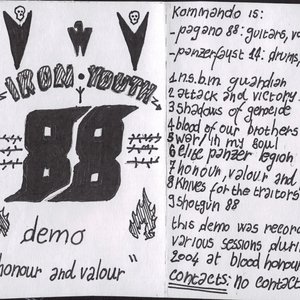 IRON YOUTH
88
demo
"honour and valour"
kommando is:
-pagano 88: guitars, vo
-panzerfayst 14: drums,
1.n.s.b.m guardian
2 attack and victory
3shadows of genocide
4blood of our brothers
5war/in my soul
6elise panzer legion
7honour, valour and
8knives for the traitors
9shotgun 88
this demo was record
various sessions durin
2004 at blood honour
contacts: no contact